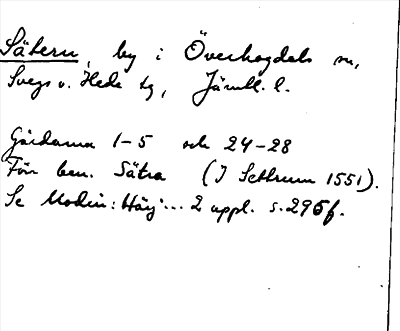 Sätern, by i Överhogdals sn,
Svegs o. Hede tg, Jämtl. l.
Gårdarna 1-5 och 24-28
Förr ben. Sätra (I Settrum 1551).
Se Modin: Härj... 2 uppl. s. 295f.